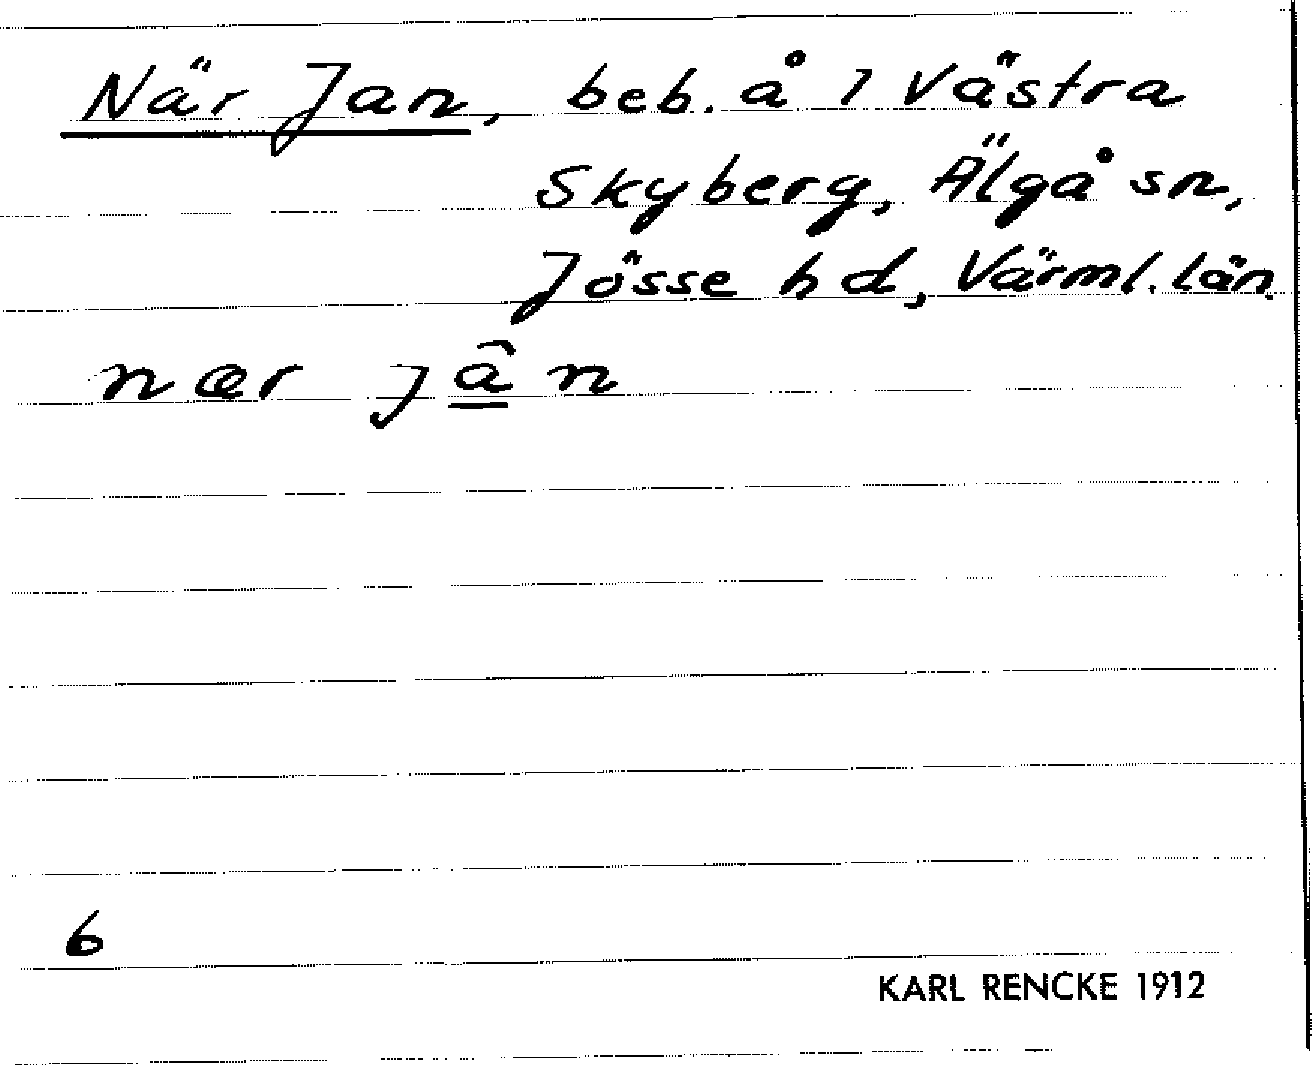 När Jan, beb. å 1 Västra
Skyberg, Älgå sn,
Jösse hd, Värml. län.
nær jân
6
KARL RENCKE 1912